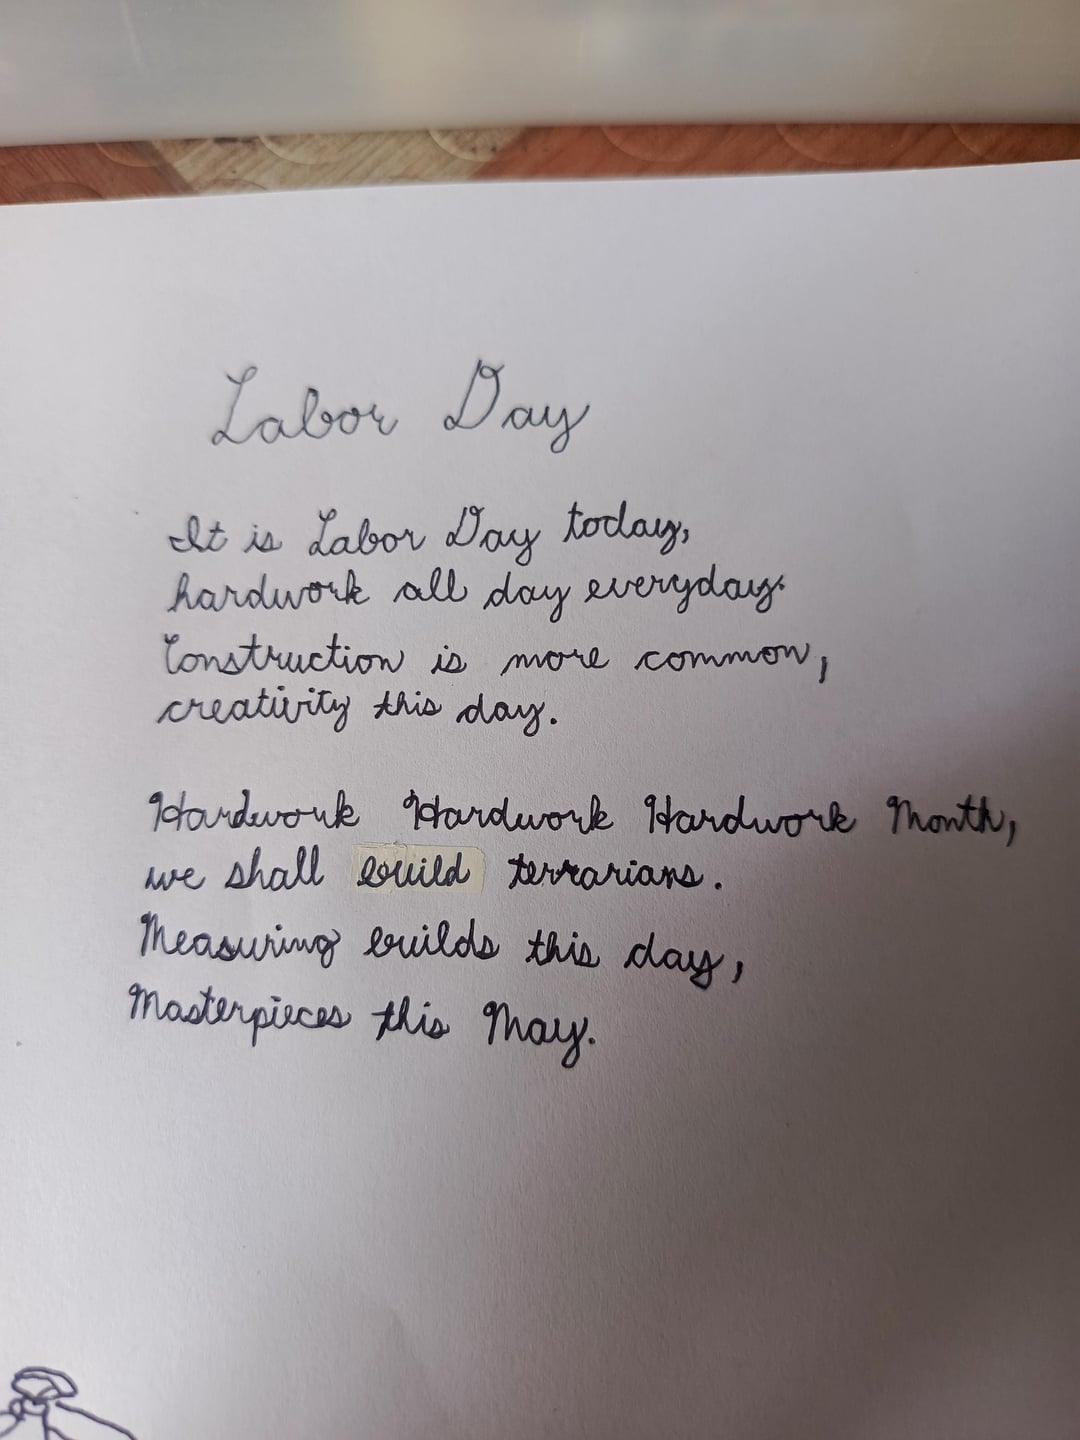 Labor Day
It is Labor Day today,
hardwork all day everyday.
Construction is more common,
creativity this day.
Hardwork Hardwork Hardwork Month,
we shall build terrarians.
Measuring builds this day,
Masterpieces this May.